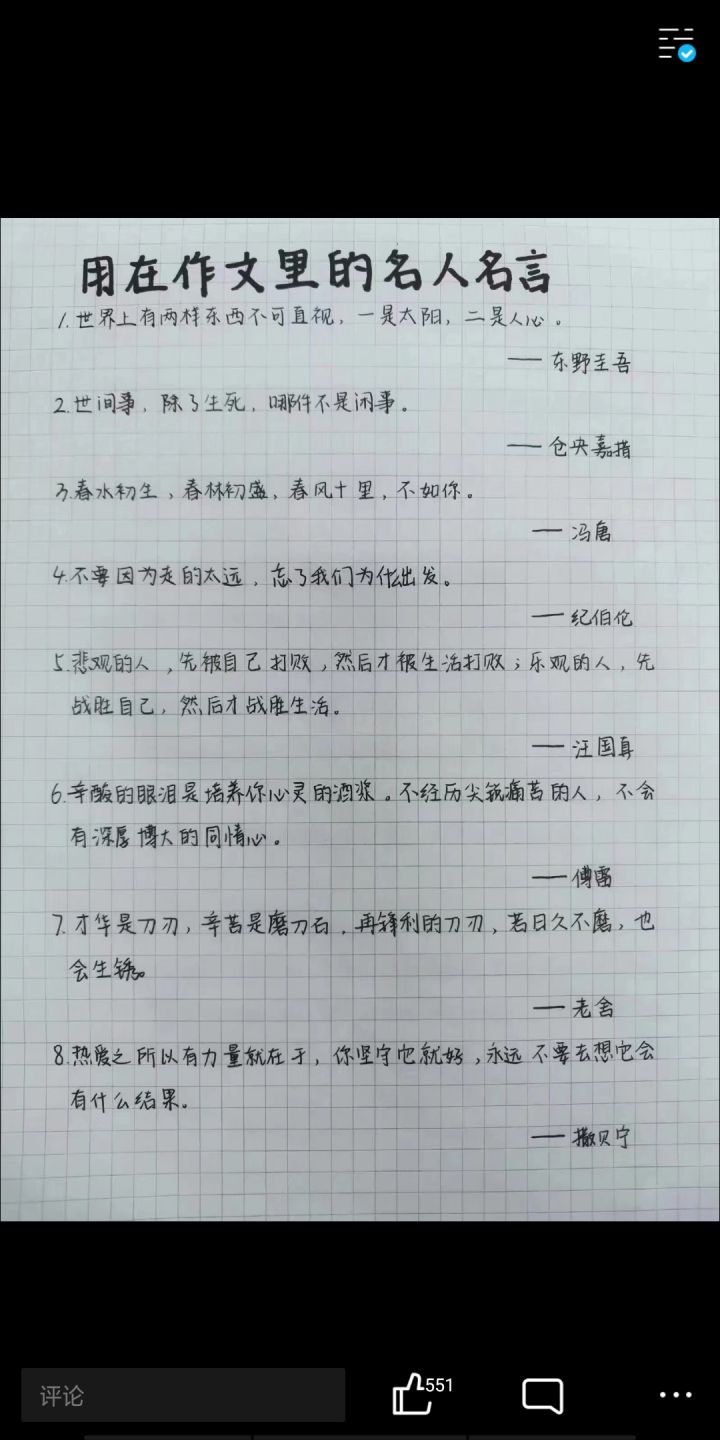 用在作文里的名人名言
1.世界上有两样东西不可直视，一是太阳，二是人心。
——东野圭吾
2.世间事，除了生死，哪件不是闲事。
——仓央嘉措
3.春水初生，春林初盛，春风十里，不如你。
——冯唐
4.不要因为走的太远，忘了我们为什么出发。
——纪伯伦
5.悲观的人，先被自己打败，然后才被生活打败；乐观的人，先
战胜自己，然后才战胜生活。
——汪国真
6.辛酸的眼泪是培养你心灵的酒浆。不经历尖锐痛苦的人，不会
有深厚博大的同情心。
——傅雷
7.才华是刀刃，辛苦是磨刀石，再锋利的刀刃，若日久不磨，也
会生锈。
——老舍
8.热爱之所以有力量就在于，你坚守它就好，永远不要去想它会
有什么结果。
——撒贝宁
评论
551